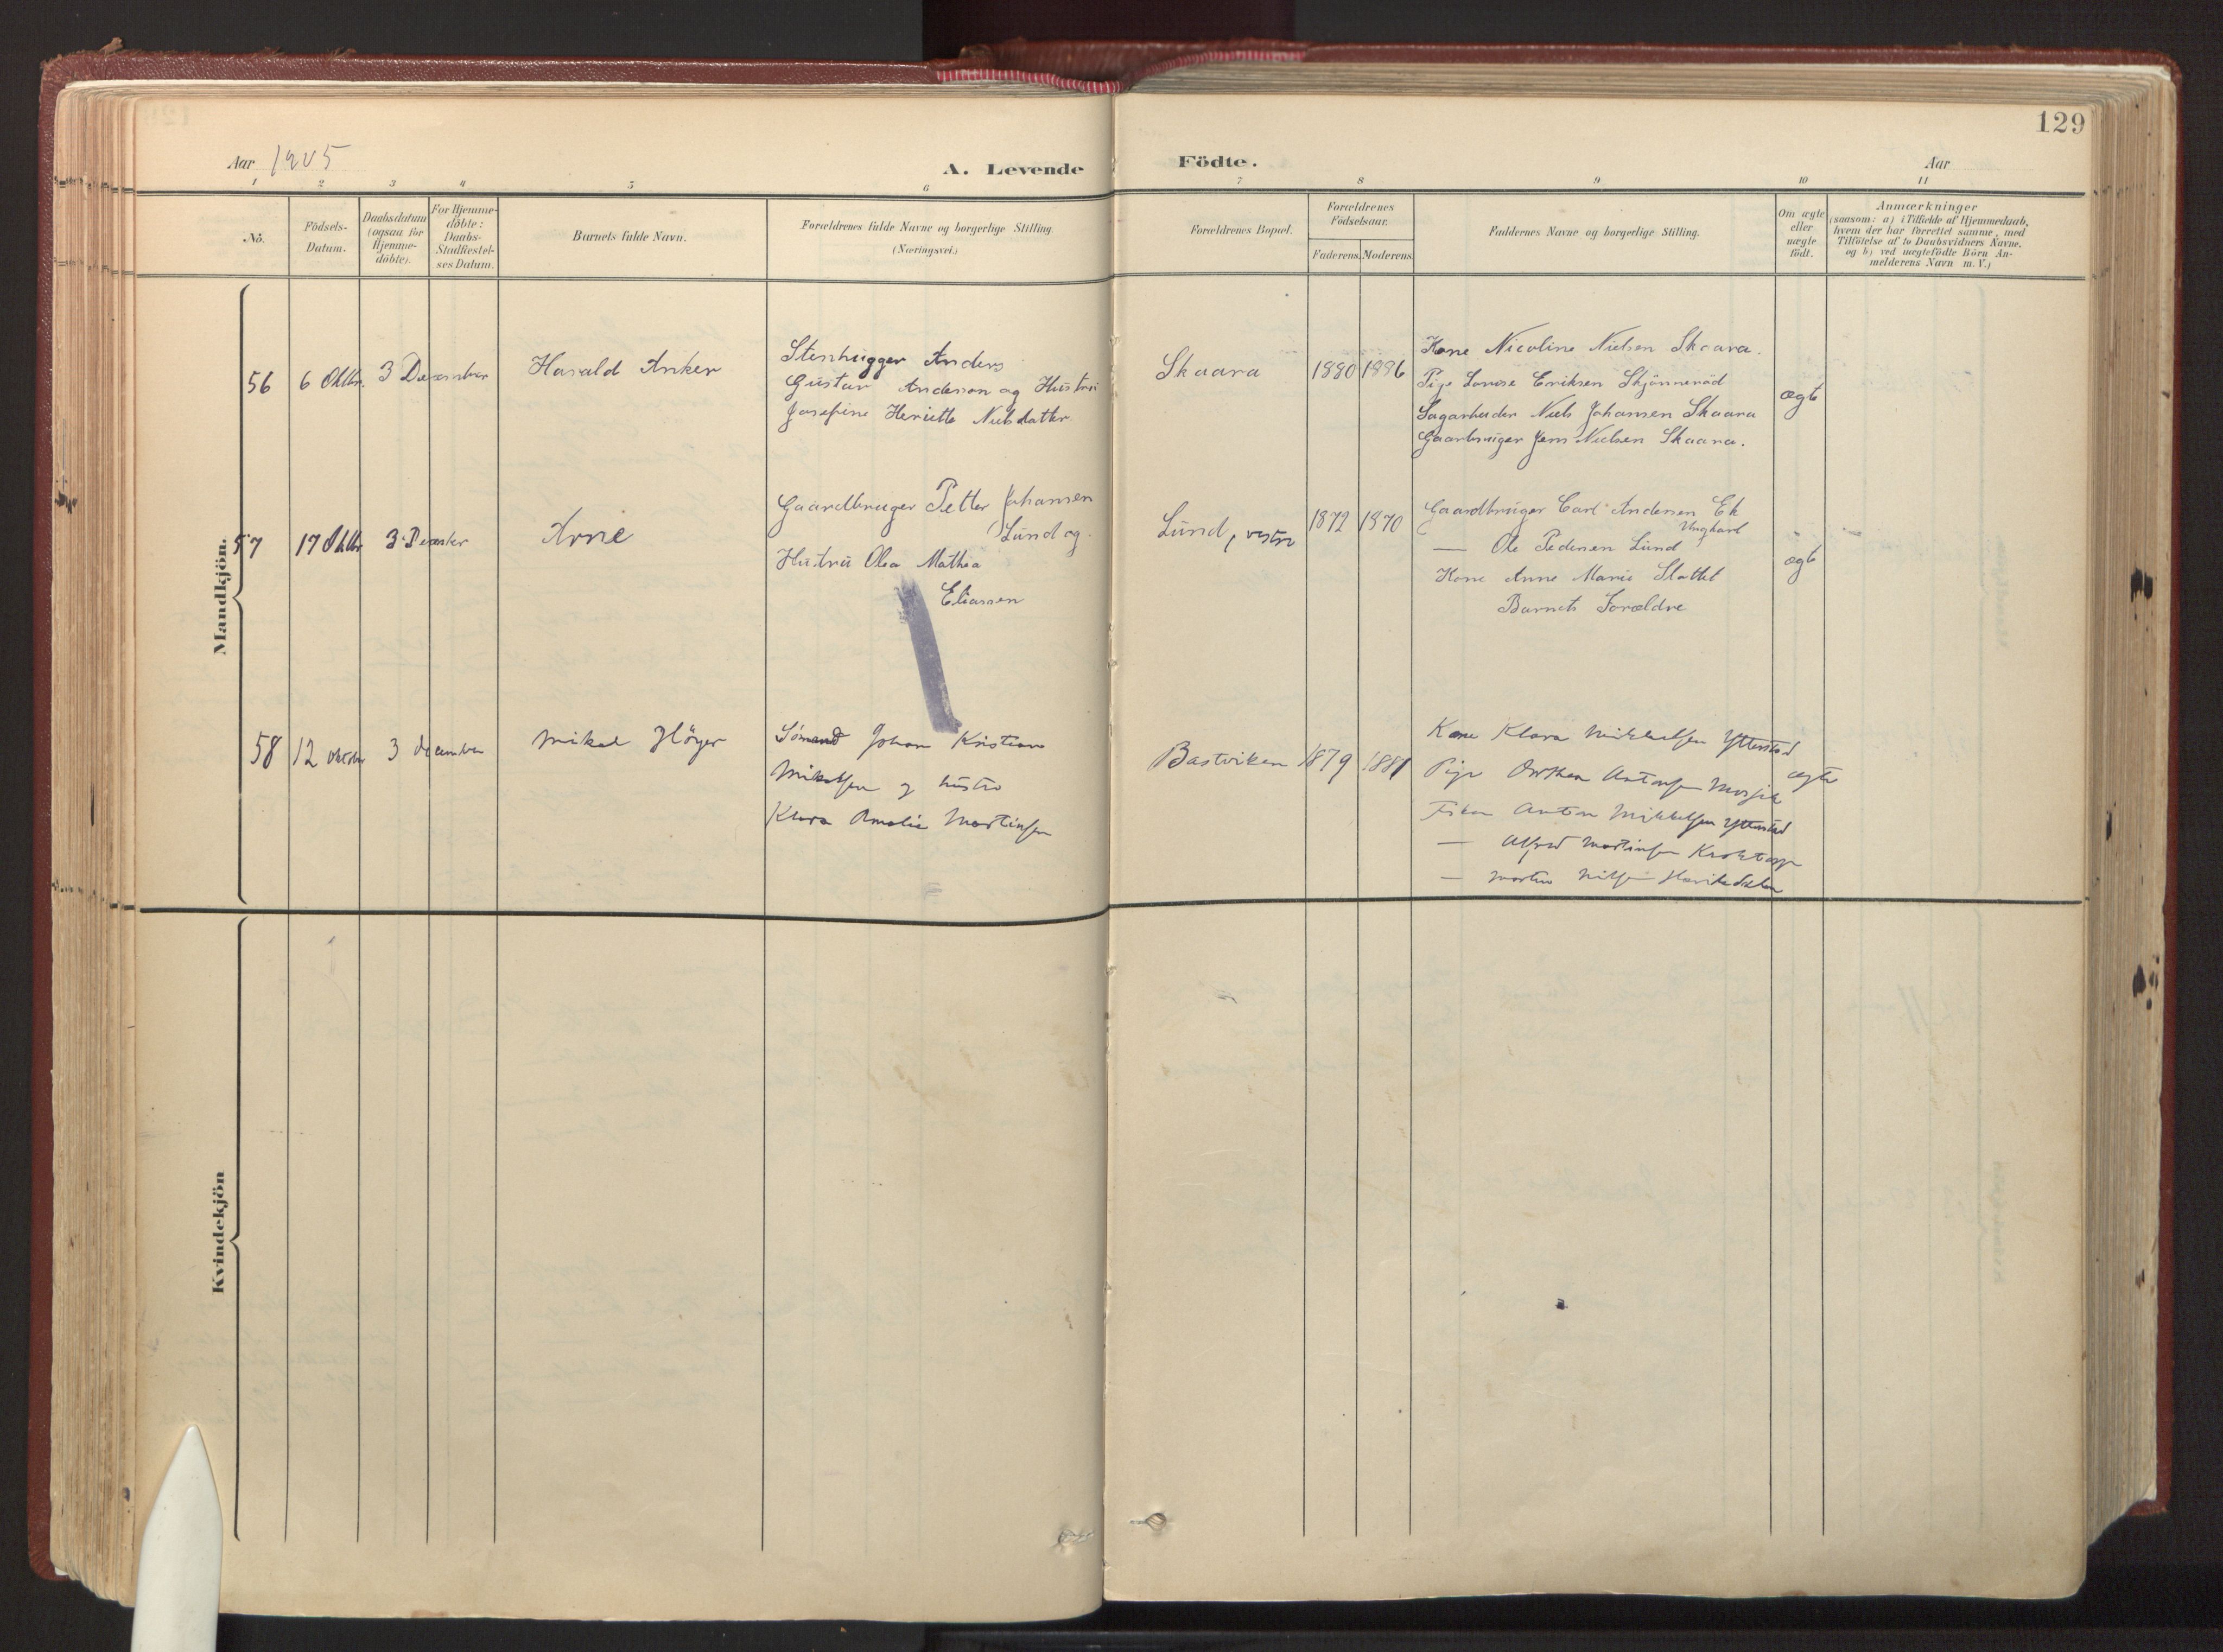 129
Aar 1905
A. Levende Födte.
Aar
1 2 3 4 5 6 7 8 9 10 11
No.
Födsels-
Datum.
Daabsdatum
(ogsaa for
Hjemme-
döbte).
For Hjemme-
döbte:
Daabs-
Stadfæstel-
ses Datum.
Barnets fulde Navn.
Forældrenes fulde Navne og borgerlige Stilling
(Næringsvei.)
Forældrenes Bopæl.
Forældrenes
Födselsaar.
Faderens. Moderens.
Faddernes Navne og borgerlige Stilling.
Om ægte
eller
uægte
födt.
Anmærkninger
(saasom: a) i Tilfælde af Hjemmedaab,
hvem der har forrettet samme, med
Tilföielse af to Daabsvidners Navne.
og b) ved uægtefödte Börn An-
melderens Navn m. V.)
Mandkjön.
56 6 Oktbr. 3 December Harald Anker
Stenhugger Anders
Gustav Anderson og Hustru
Josefine Henriette Nielsdatter
Skaara 1880 1886
Kone Nicoline Nielsen Skaara.
Pige Lovise Eriksen Skjönneröd
Sagarbeider Niels Johansen Skaara
Gaardbruger Jens Nielsen Skaara.
ægte
57 17 Oktbr 3 December Arne
Gaardbruger Petter Johansen
Lund og
Hustru Olea Mathea
Eliassen
Lund, vestre 1872 1870
Gaardbruger Carl Andersen Ek
Ungkarl
— Ole Pedersen Lund
Kone Anne Marie Slottet
Barnets Forældre
ægte
58 12 oktober 3 december Mikal Höyer
Sömand Johan Kristian
Mikalsen og hustru
Klara Amalie Martinsen
Bastviken 1879 1881
Kone Klara Mikkelsen Ytterstad
Pige Antonsen
Anton Mikkelsen Ytterstad
— Alfred Martinsen
— Martin Nilsen
ægte
Kvindekjön